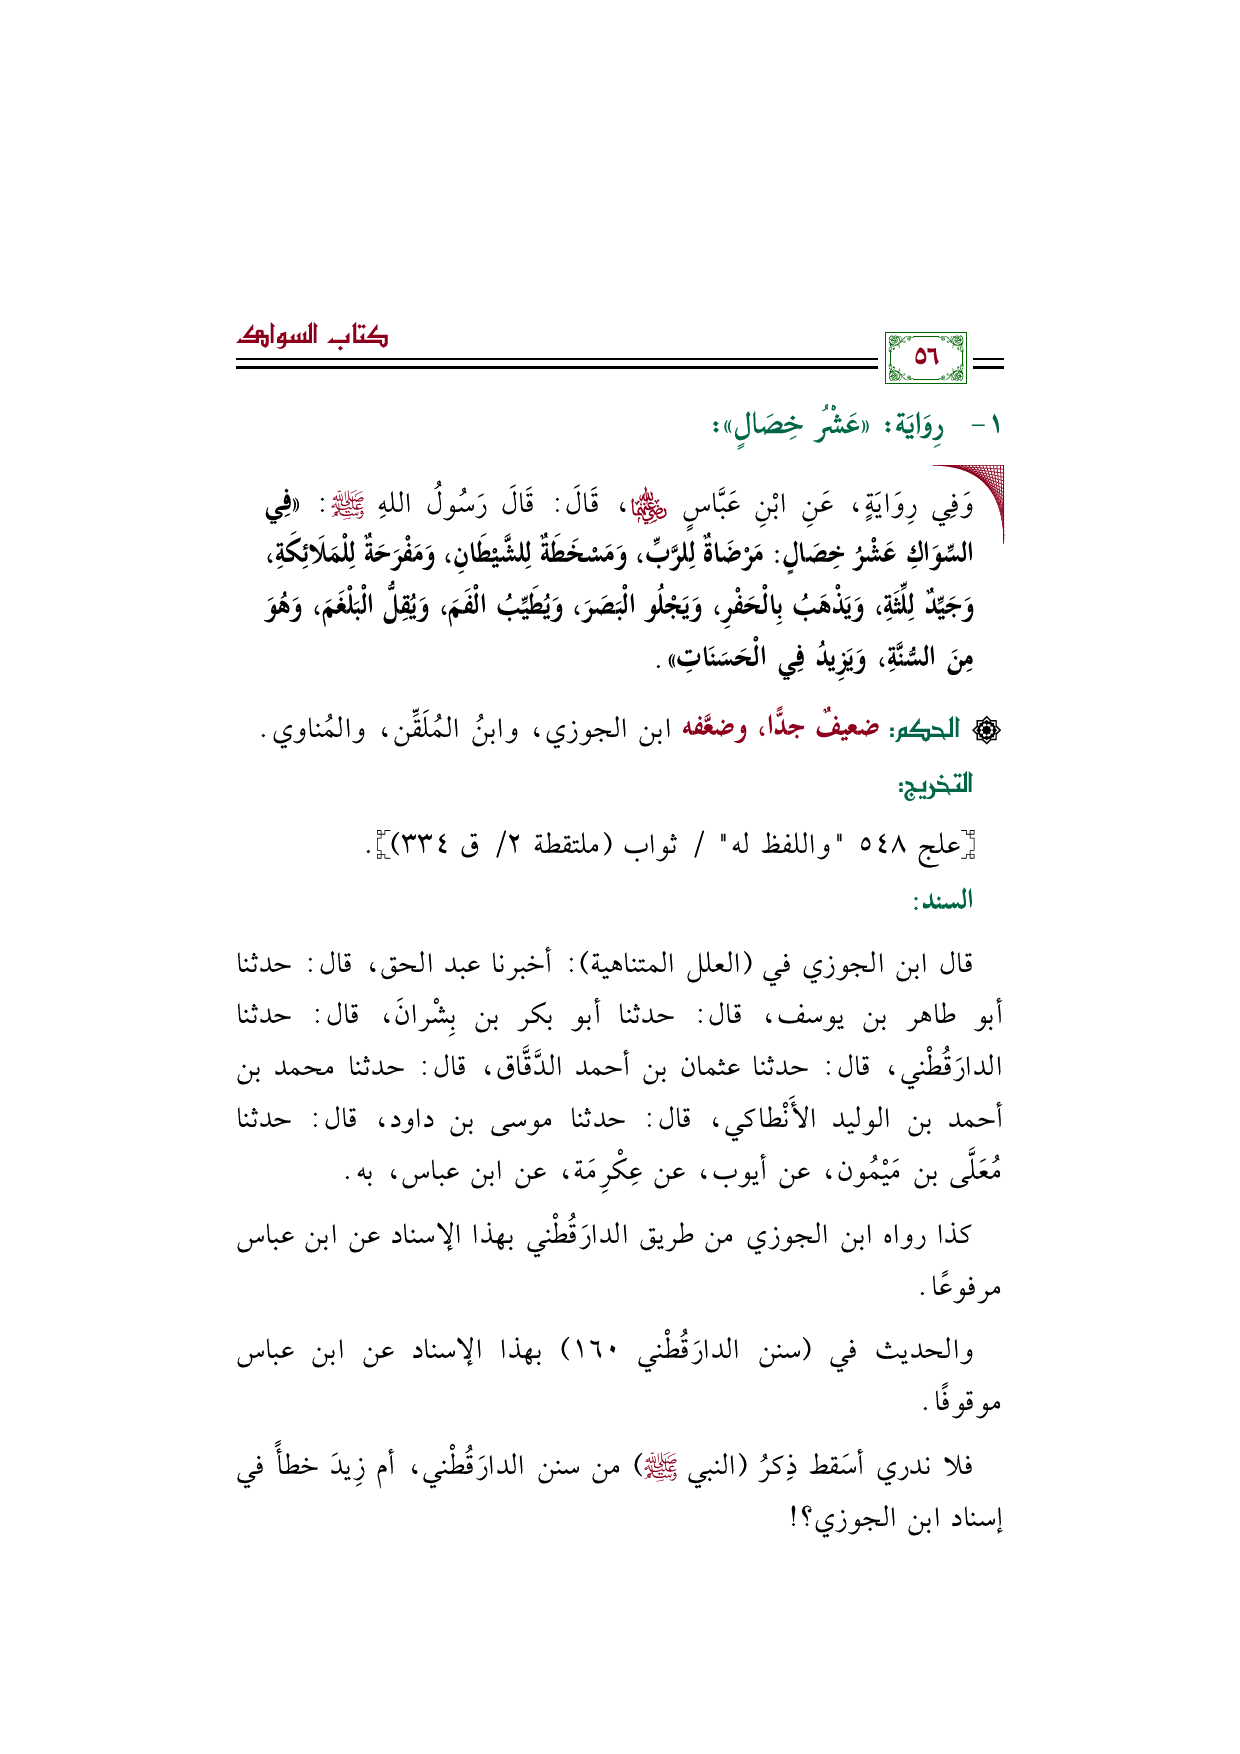 كتاب السواك
٥٦
١- رِوَايَة: «عَشْرُ خِصَالٍ»:
وَفِي رِوَايَةٍ، عَنِ ابْنِ عَبَّاسٍ ﵄، قَالَ: قَالَ رَسُولُ اللهِ ﷺ: «فِي
السِّوَاكِ عَشْرُ خِصَالٍ: مَرْضَاةٌ لِلرَّبِّ، وَمَسْخَطَةٌ لِلشَّيْطَانِ، وَمَفْرَحَةٌ لِلْمَلَائِكَةِ،
وَجَيِّدٌ لِلِّثَةِ، وَيَذْهَبُ بِالْحَفْرِ، وَيَجْلُو الْبَصَرَ، وَيُطَيِّبُ الْفَمَ، وَيُقِلُّ الْبَلْغَمَ، وَهُوَ
مِنَ السُّنَّةِ، وَيَزِيدُ فِي الْحَسَنَاتِ».
الحكم: ضعيفٌ جدًّا، وضعَّفه ابن الجوزي، وابنُ المُلَقِّن، والمُناوي.
التخريج:
[علج ٥٤٨ "واللفظ له" / ثواب (ملتقطة ٢/ ق ٣٣٤)].
السند:
قال ابن الجوزي في (العلل المتناهية): أخبرنا عبد الحق، قال: حدثنا
أبو طاهر بن يوسف، قال: حدثنا أبو بكر بن بِشْرانَ، قال: حدثنا
الدارَقُطْني، قال: حدثنا عثمان بن أحمد الدَّقَّاق، قال: حدثنا محمد بن
أحمد بن الوليد الأَنْطاكي، قال: حدثنا موسى بن داود، قال: حدثنا
مُعَلَّى بن مَيْمُون، عن أيوب، عن عِكْرِمَة، عن ابن عباس، به.
كذا رواه ابن الجوزي من طريق الدارَقُطْني بهذا الإسناد عن ابن عباس
مرفوعًا.
والحديث في (سنن الدارَقُطْني ١٦٠) بهذا الإسناد عن ابن عباس
موقوفًا.
فلا ندري أسَقط ذِكرُ (النبي ﷺ) من سنن الدارَقُطْني، أم زِيدَ خطأً في
إسناد ابن الجوزي؟!